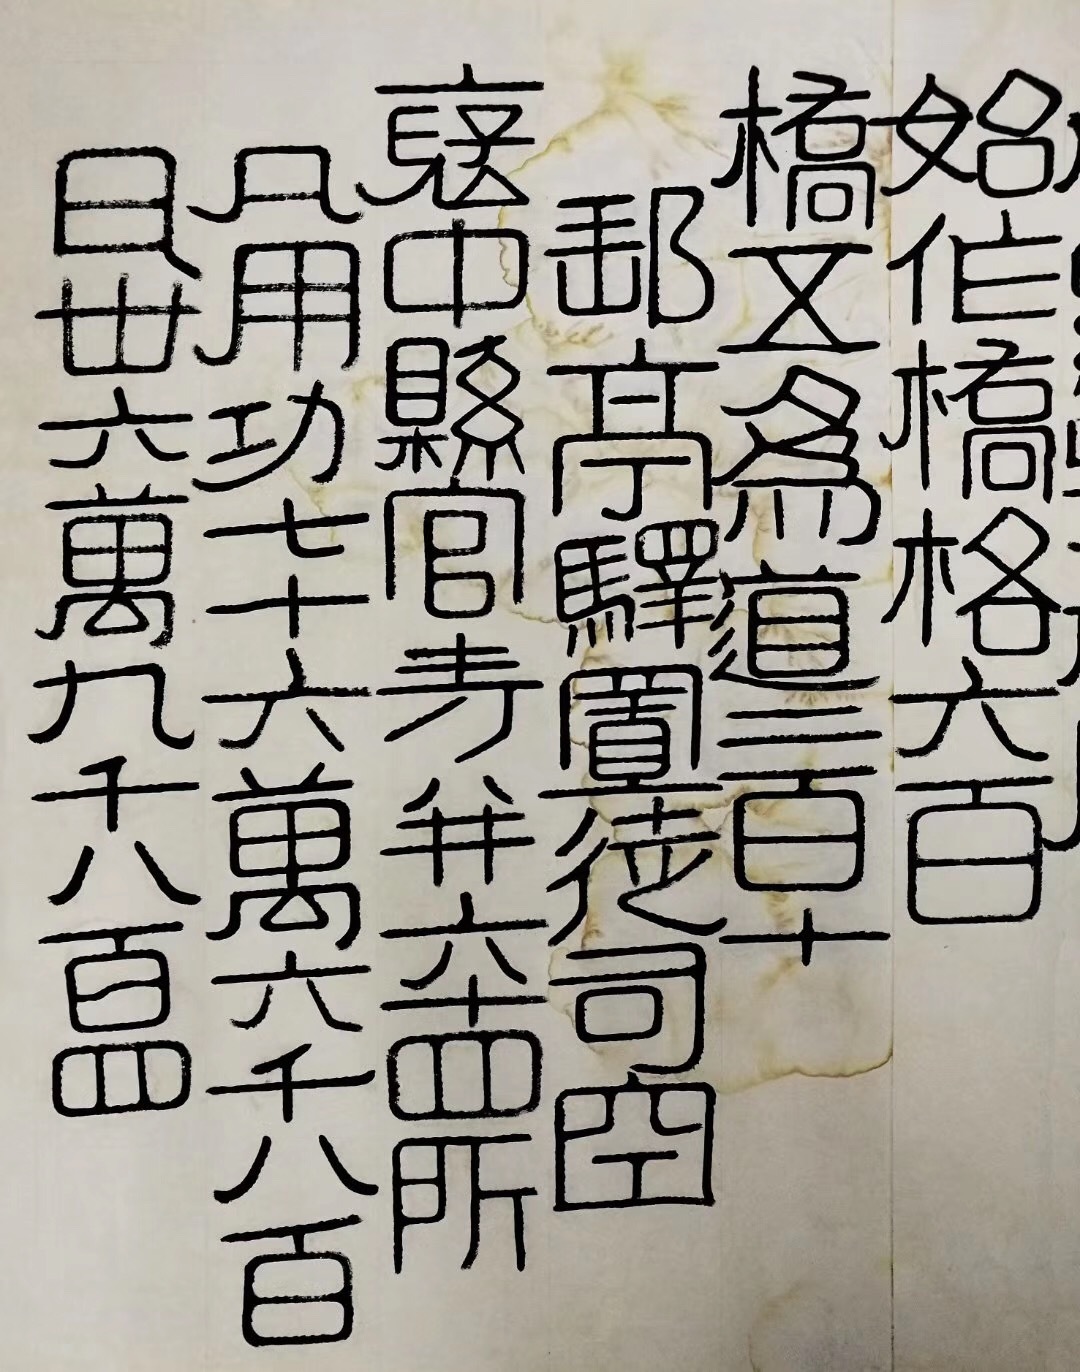 始作橋格六百
橋五為道二百十
郵亭驛置徒司空
褒中縣官寺并六十四所
凡用功七十六萬六千八百
日卌六萬九千八百四